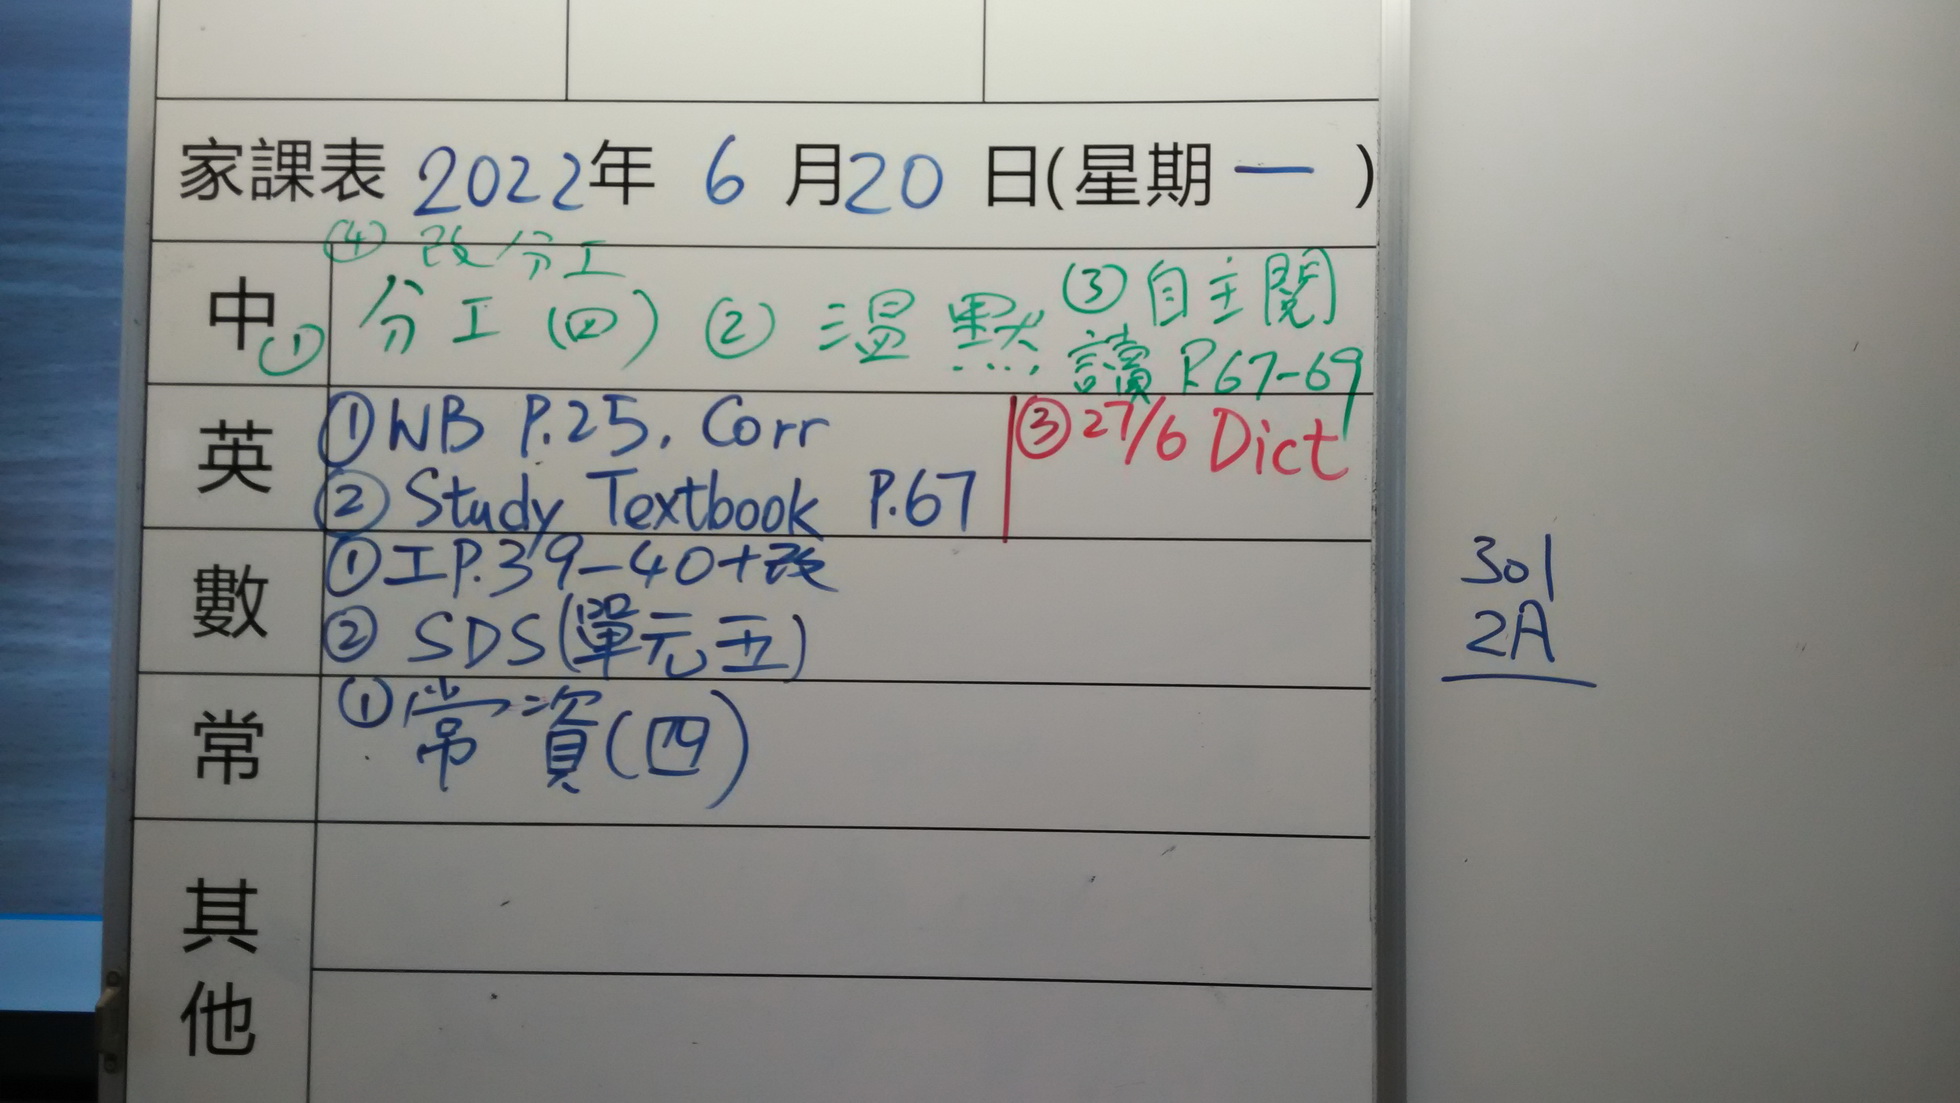 家課表 2022年 6 月20 日(星期一 )
④ 改分工
中 ① 分工(四) ② 温默 ③ 自主閱
讀 P.67-69
英 ① WB P.25, Corr ③ 27/6 Dict
② Study Textbook P.67
數 ① 工P.39-40+改
② SDS(單元五)
常 ① 常資(四)
其
他
301
2A